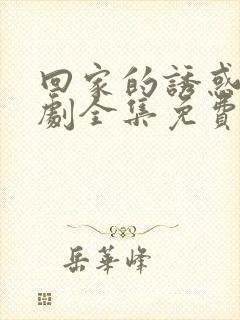 回家的誘惑
劇全集免費
岳華峰